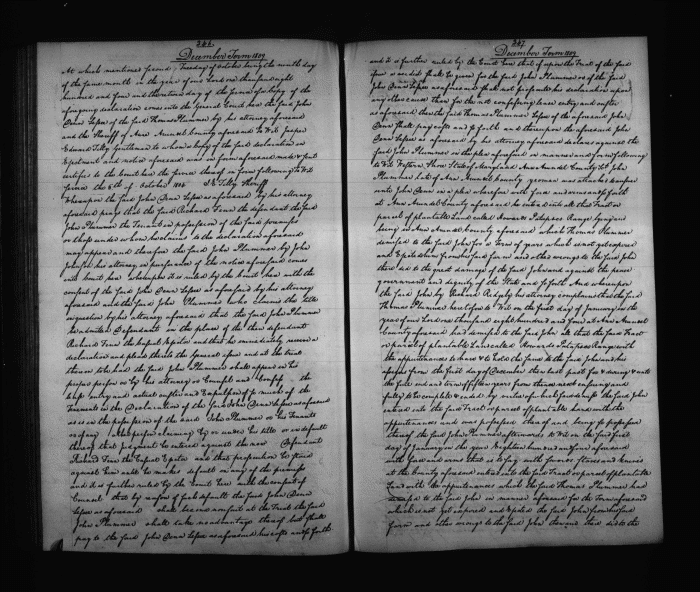 346
December Term 1809
At which mentioned second Tuesday of October being the ninth day
of the same month in the year of our Lord one thousand eight
hundred and four and the return day of the a copy of the
foregoing declaration comes into the General Court here the said John
Denn Lessee of the said Thomas Plummer by his attorney aforesaid
and the Sheriff of Ann Arundel County aforesaid To Wit Jasper
Edward Tilly Gentleman to whom a copy of the said declaration in
Ejectment and notice aforesaid was in form aforesaid made & sent
certifies to the Court here the service thereof in form following To Wit
Served the 6th of October 1804 Tilly Sheriff
Whereupon the said John Denn Lessee as aforesaid by his attorney
aforesaid prays that the said Richard Fenn the defendant the said
John Plummer the Tenant in possession of the said premises
or those under whom he claims to the declaration aforesaid
may appear and therefore the said John Plummer by John
Johnson his attorney in pursuance of the notice aforesaid comes
into Court here whereupon it is ruled by the Court here with the
consent of the said John Denn Lessee as aforesaid by his attorney
aforesaid and the said John Plummer who claims the title
in question by his attorney aforesaid that the said John Plummer
be admitted Defendant in the place of the then defendant
Richard Fenn the casual Ejector and that he immediately receive a
declaration and pleads thereto the general issue and at the trial
thereon to be had the said John Plummer shall appear in his
proper person or by his attorney or Counsel and Confess the
lease entry and actual ouster and Expulsion of so much of the
Tenements in the Declaration of the said John Denn Lessee as aforesaid
as is in the possession of the said John Plummer or his Tenants
or of any other person claiming by or under his title or in default
thereof that judgment be entered against the now Defendant
Richard Fenn the Casual Ejector and that prosecution be stayed
against him until he make default in any of the premises
and it is further ruled by the Court here with the consent of
Counsel that by reason of such default the said John Denn
Lessee as aforesaid shall be nonsuit at the Trial the said
John Plummer shall take no advantage thereof but shall
pay to the said John Denn Lessee as aforesaid his costs and so forth
347
December Term 1809
and it is further ruled by the Court here that if upon the Trial of the said
issue a verdict shall be given for the said John Plummer or if the said
John Denn Lessee as aforesaid shall not prosecute his declaration upon
any other cause than for the not confessing lease entry and ouster
as aforesaid then the said Thomas Plummer Lessor of the aforesaid John
Denn shall pay costs and so forth and thereupon the aforesaid John
Denn Lessee as aforesaid by his attorney aforesaid declares against the
said John Plummer in the plea aforesaid in manner and form following
To Wit Western Shore State of Maryland Ann Arundel County Sc John
Plummer late of Ann Arundel County yeoman was attached to answer
unto John Denn in a plea wherefore with force and arms and so forth
at Ann Arundel County aforesaid he entered into all that Tract or
parcel of plantable Land called Howards Patapsco Range lying and
being in Ann Arundel County aforesaid which Thomas Plummer
demised to the said John for a term of years which is not yet expired
and Ejected him from his said farm and other wrongs to the said John
there did to the great damage of the said John and against the peace
government and dignity of the State and so forth And whereupon
the said John by Richard Ridgely his attorney complains that the said
Thomas Plummer heretofore to Wit on the first day of January in the
year of our Lord one thousand eight hundred and four at Ann Arundel
County aforesaid had demised to the said John all that the said Tract
or parcel of plantable Land called Howards Patapsco Range with
the appurtenances to have & to hold the same to the said John and his
assigns from the first day of December then last past for & during & unto
the full end and term of fifteen years from thence next ensuing and
fully to be complete & ended by virtue of which said demise the said John
entered into the said Tract or parcel of plantable land with the
appurtenances and was possessed thereof and being so possessed
thereof the said John Plummer afterwards to Wit on the said first
day of January in the year Eighteen hundred and four aforesaid
with force and arms that is to say with swords staves and knives
at the County aforesaid entered into the said Tract or parcel of plantable
Land with the appurtenances which the said Thomas Plummer had
demised to the said John in manner aforesaid for the Term aforesaid
which is not yet expired and ejected the said John from his said
farm and other wrongs to the said John then and there did to the